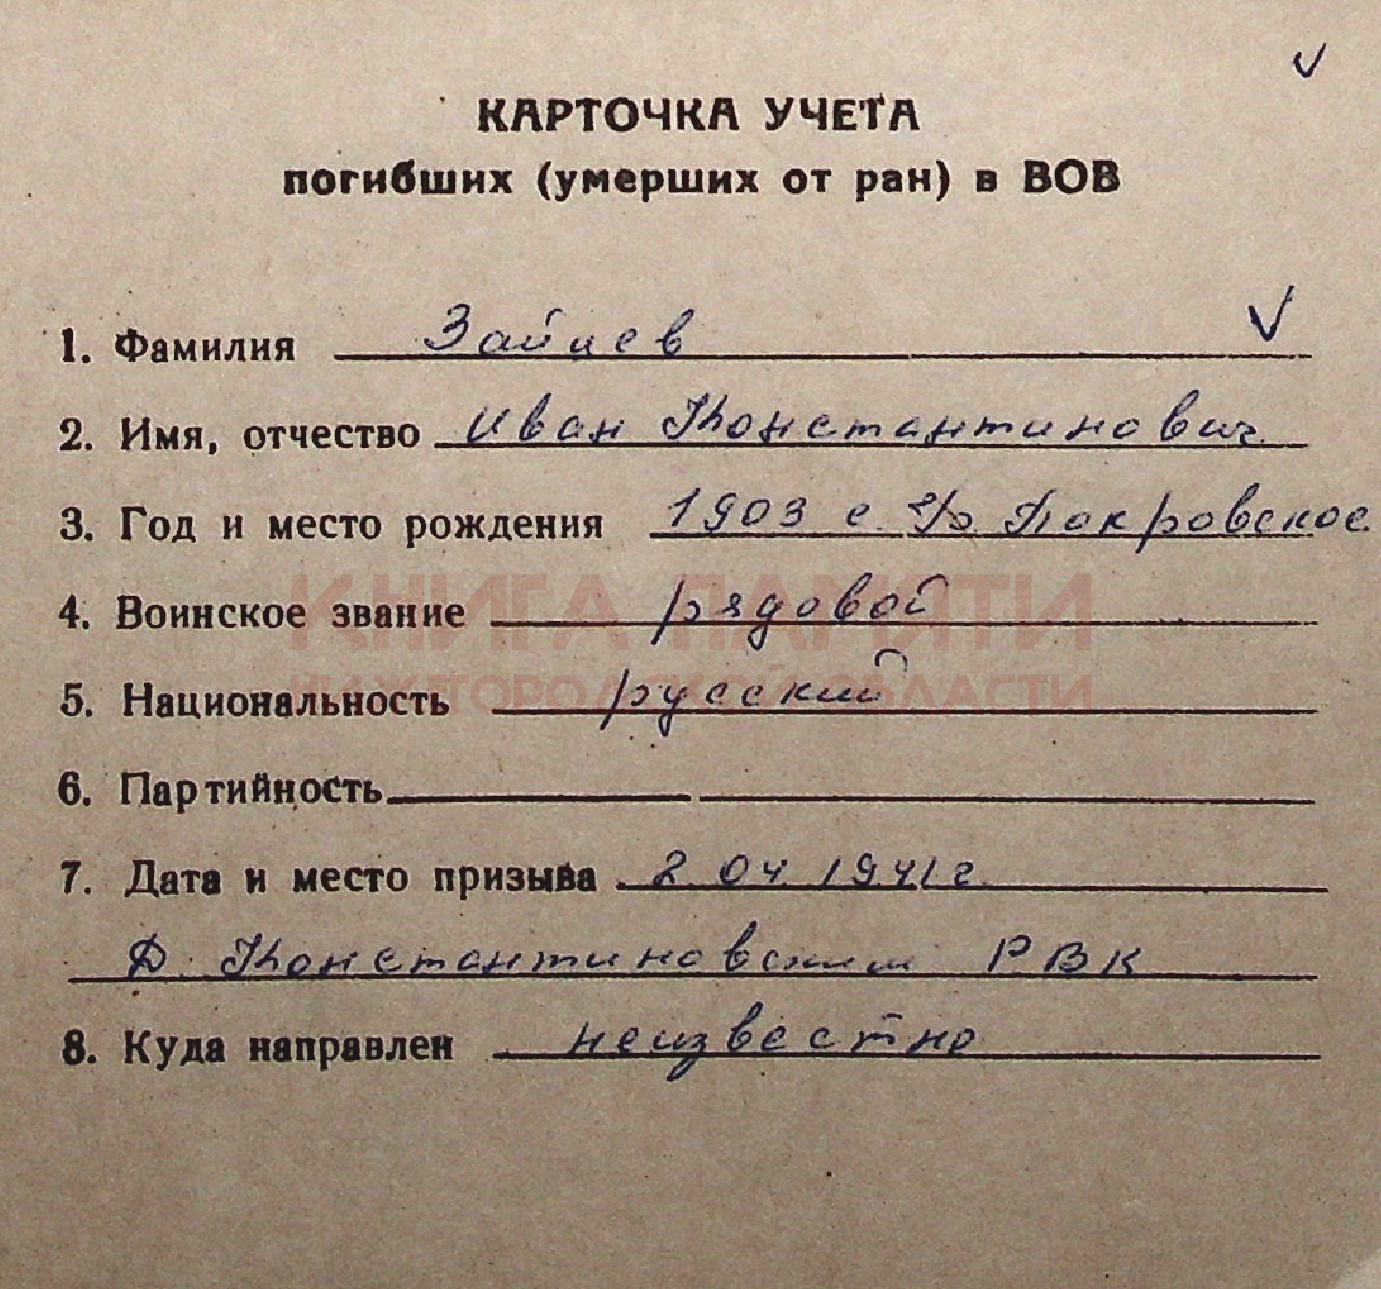 КАРТОЧКА УЧЕТА
погибших (умерших от ран) в ВОВ
1. Фамилия Зайцев
2. Имя, отчество Иван Константинович
3. Год и место рождения 1903 с. Покровское
4. Воинское звание рядовой
КНИГА ПАМЯТИ
5. Национальность русский
НИЖЕГОРОДСКОЙ ОБЛАСТИ
6. Партийность
7. Дата и место призыва 2.04.1941г.
Д. Константиновским РВК
8. Куда направлен неизвестно